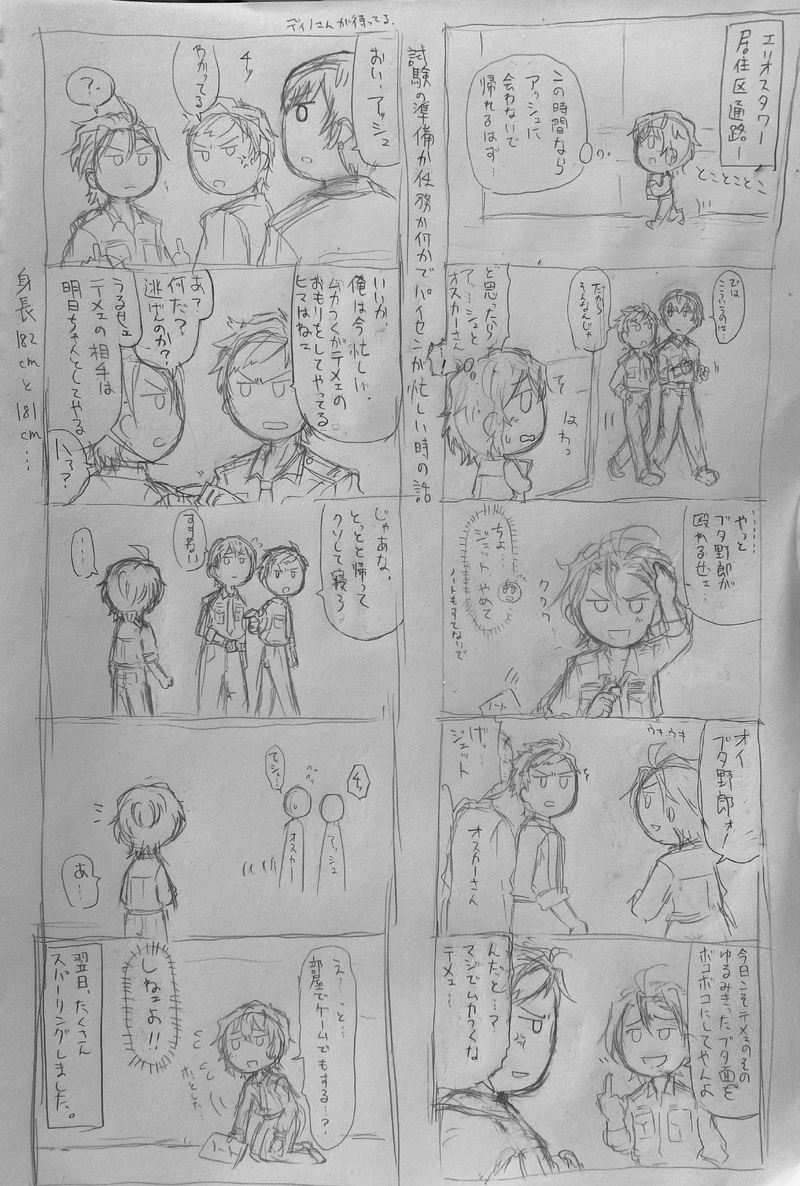 試験の準備か任務か何かでパイセンが忙しい時の話
エリオスタワー
居住区通路ー
この時間なら
アッシュに
会わないで
帰れるはず…
とことことこ
では
こういうのは…
だから
そんなんじゃ
と思ったら
アッ…シュと
オスカーさん
…!
そ
はわっ
……やっと
ブタ野郎が
殴れるぜェ…
ククク
ちょ…
ジェットやめて
ノートもすてないで
ノート
オイ
ブタ野郎ォ!
ウキウキ
げっ…
ジェット
オスカーさん
今日こそテメェのその
ゆるみきったブタ面を
ボコボコにしてやんよ
んだと…?
マジでムカつくな
テメェ…
ディノさんが待ってる.
おい、アッシュ
チッ
わかってる
?.
いいか、
俺は今忙しい.
ムカつくがテメェの
おもりをしてやってる
ヒマはねェ
あ?
何だ?
逃げんのか?
うるせェ
テメェの相手は
明日ちゃんとしてやる
身長182cmと181cm…
じゃあな、
とっとと帰って
クソして寝ろ
すまない
……
チッ
アッシュ…
アッシュ
オスカー
あ…
え…っと…
部屋でゲームでもする…?
しねェよ!!
ノート
翌日、たくさん
スパーリングしました。